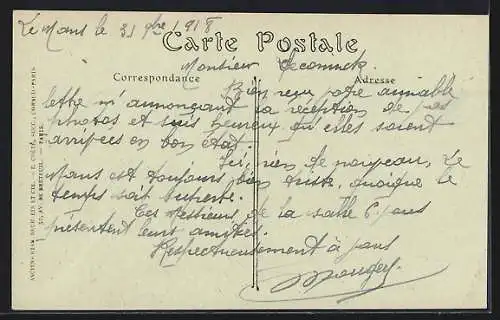 Le Mans le 31 9bre 1918
Carte Postale
Monsieur Lecominck
Correspondance Adresse
Bien reçu votre aimable
lettre m'annonçant la réception de
photos et suis heureux qu'elles soient
arrivées en bon état.
Ici, rien de nouveau. Le
Mans est toujours bien triste, quoique le
temps soit superbe.
Ces Messieurs de la salle 6 vous
présentent leurs amitiés.
Respectueusement à vous